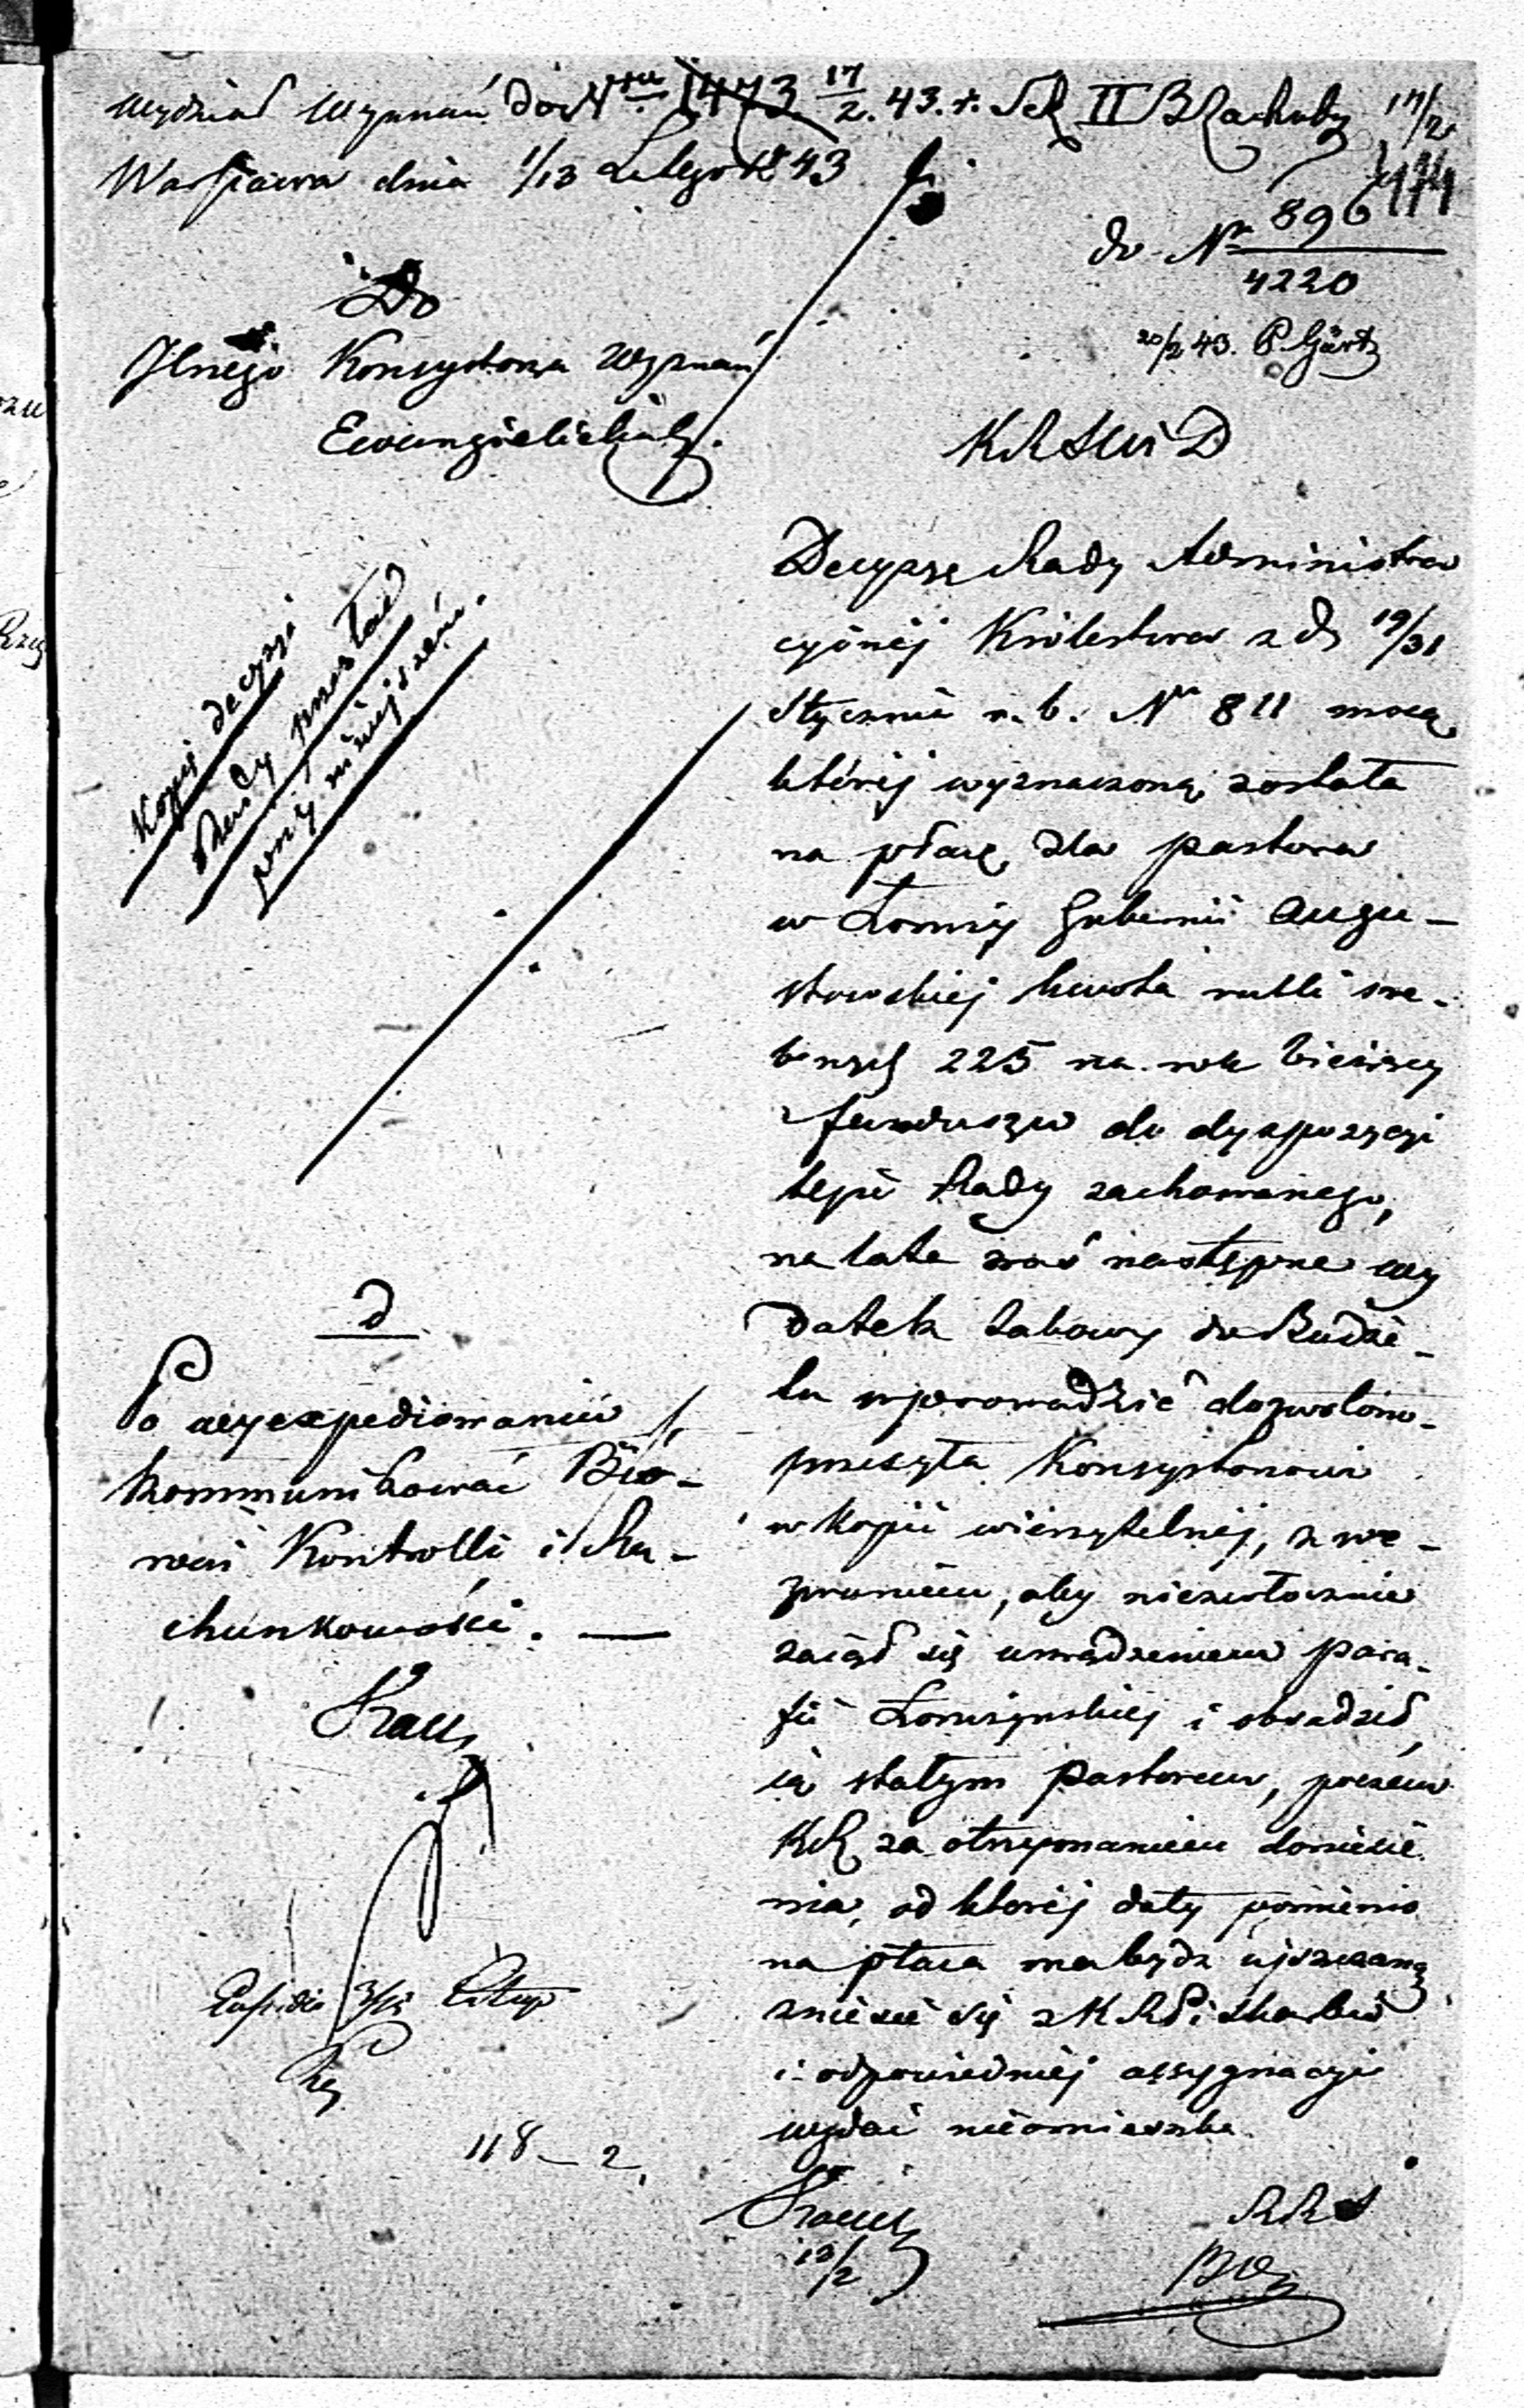 Wydział Wyznań do Nru 1473 17/2. 43. r. Sek II B Rachuby 17/2
Warszawa dnia 1/13 Lutego R 43
474
do Nr 896
4220
20/2 43. P. Gärtz
Do
Jlnego Konsystorza Wyznań
Ewangielickich.
K R S W i D
Kopiją decyzyi
Rady przesłać
przy niniejszem.
Decyzję Rady Administra
cyinéj Królestwa z d 19/31
Stycznia r. b. Nr 811 mocą
któréj wyznaczoną została
na płacę dla pastora
w Łomży Gubernii Augu-
stowskiej kwota rubli sre-
brnych 225 na rok bieżący
z funduszu do dyspozycyi
tejże Rady zachowanego,
na lata zaś następne wy
datek takowy do Budże-
tu wprowadzić dozwolono-
przesyła Konsystorzowi
w kopii wierzytelnéj, z we-
zwaniem, aby niezwłocznie
zajął się urządzeniem para-
fii Łomżyńskiej i obsadził
ią stałym pastorem, poczém
KR za otrzymaniem doniesie
nia, od któréj daty pomienio
na płaca ma bydź uiszczaną
zniesie się z K R P i Skarbu
i odpowiedniéj assygnacyi
wydać nieomieszka.
d
Po wyexpediowaniu
kommunikować Biu-
rowi Kontrolli i Ra-
chunkowości. —
118 - 2
13/2